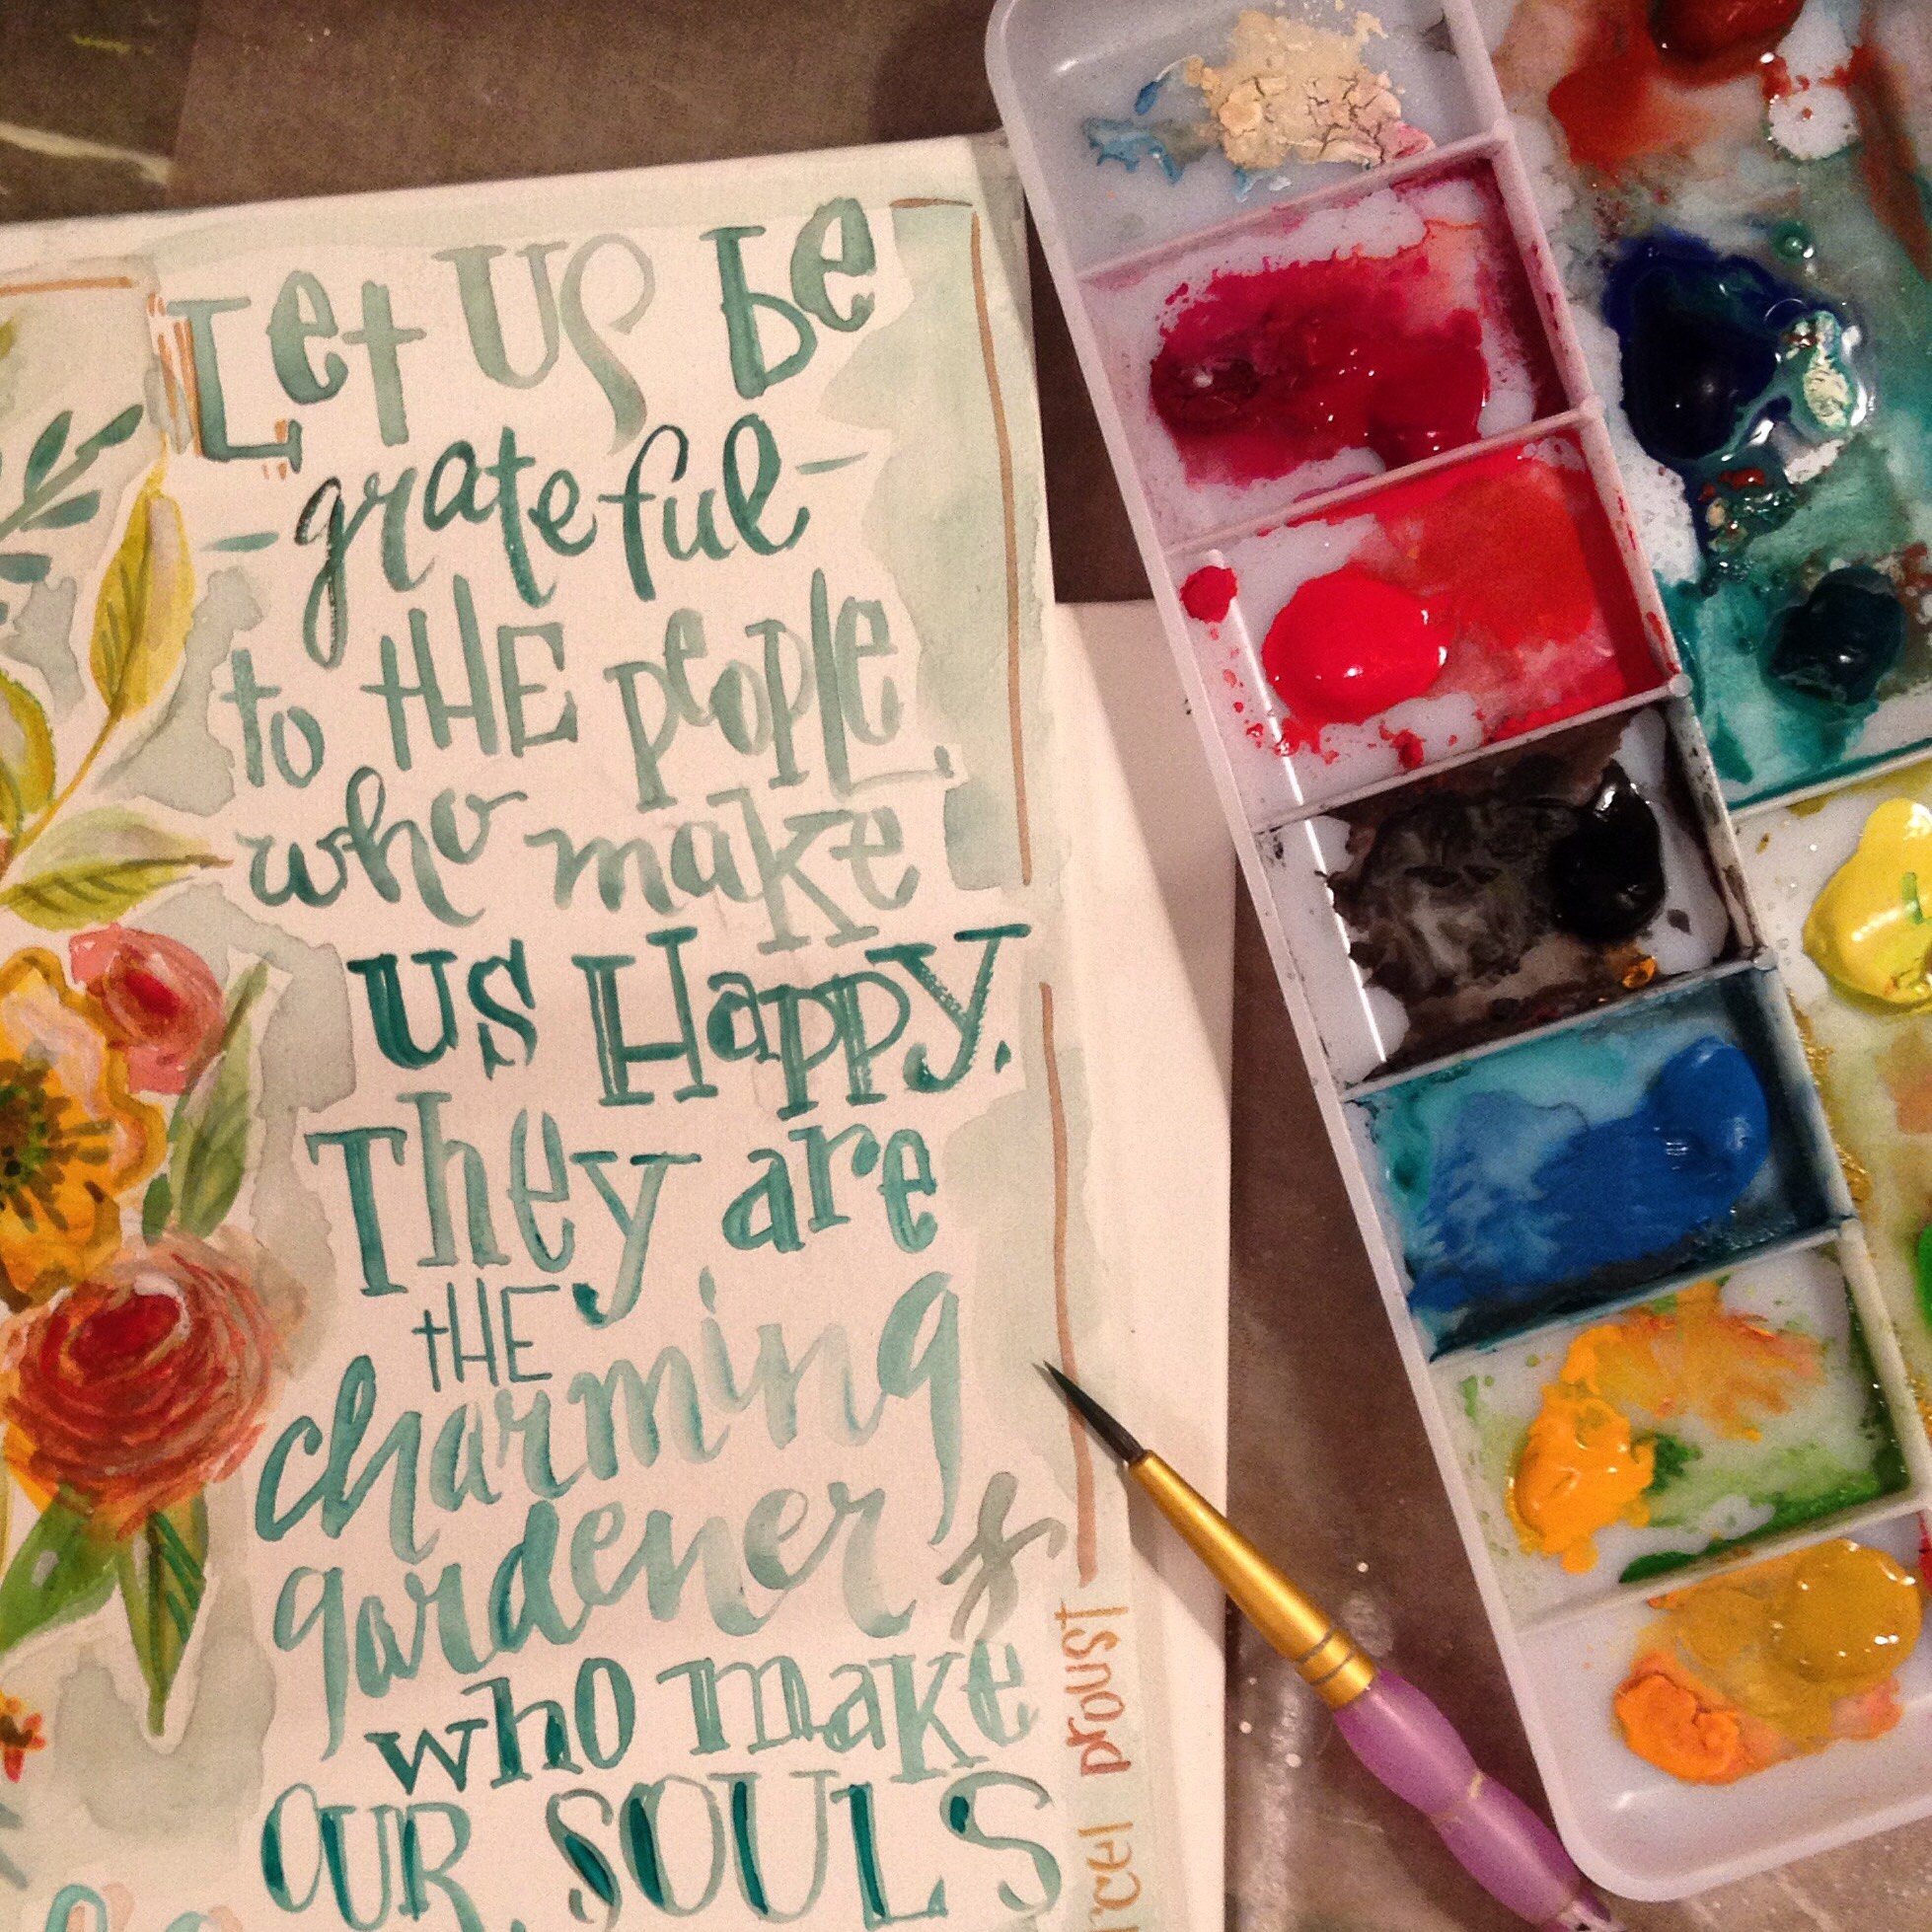 Let us be
grateful
to tHE people
who make
us Happy.
They are
tHE
charming
gardeners
who make
OUR SOULS
rcel proust